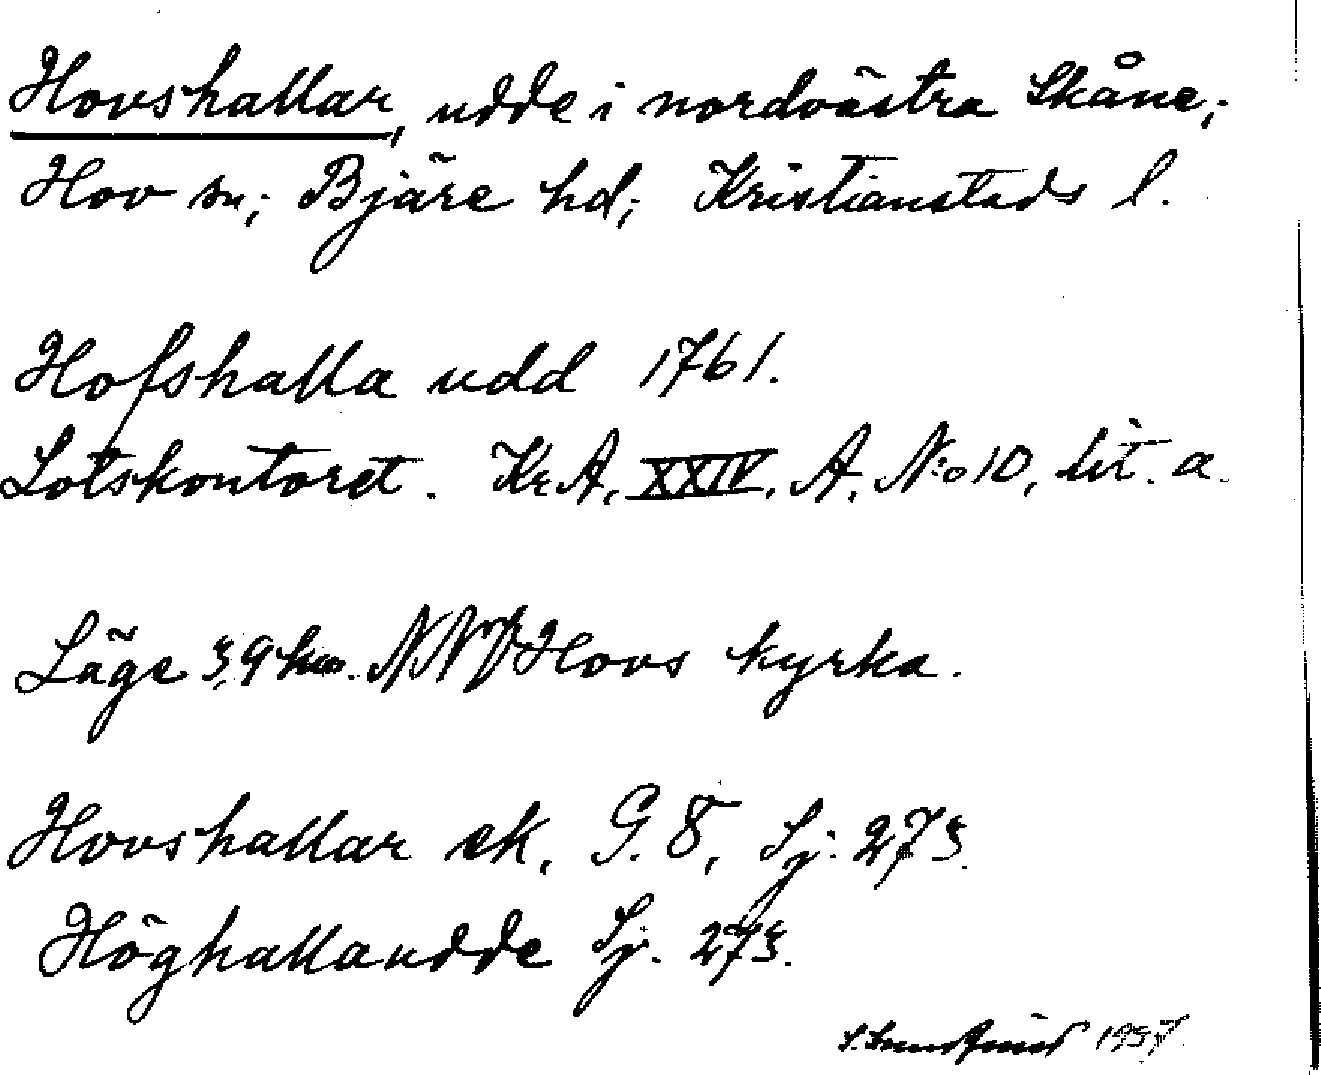 Hovshallar, udde i nordvästra Skåne;
Hov sn; Bjäre hd; Kristianstads l.
Hofshalla udd 1761.
Lotskontoret. Kr A, XXIV, A, N:o 10, lit. a.
Läge 3,9 km. NNV Hovs kyrka.
Hovshallar ek. G. 8, Sj. 273.
Höghallaudde Sj. 273.
1937